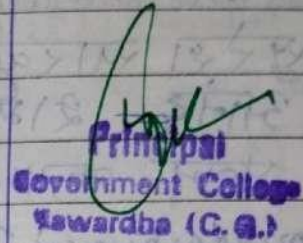 Principal
Government College
Kawardha (C.G.)